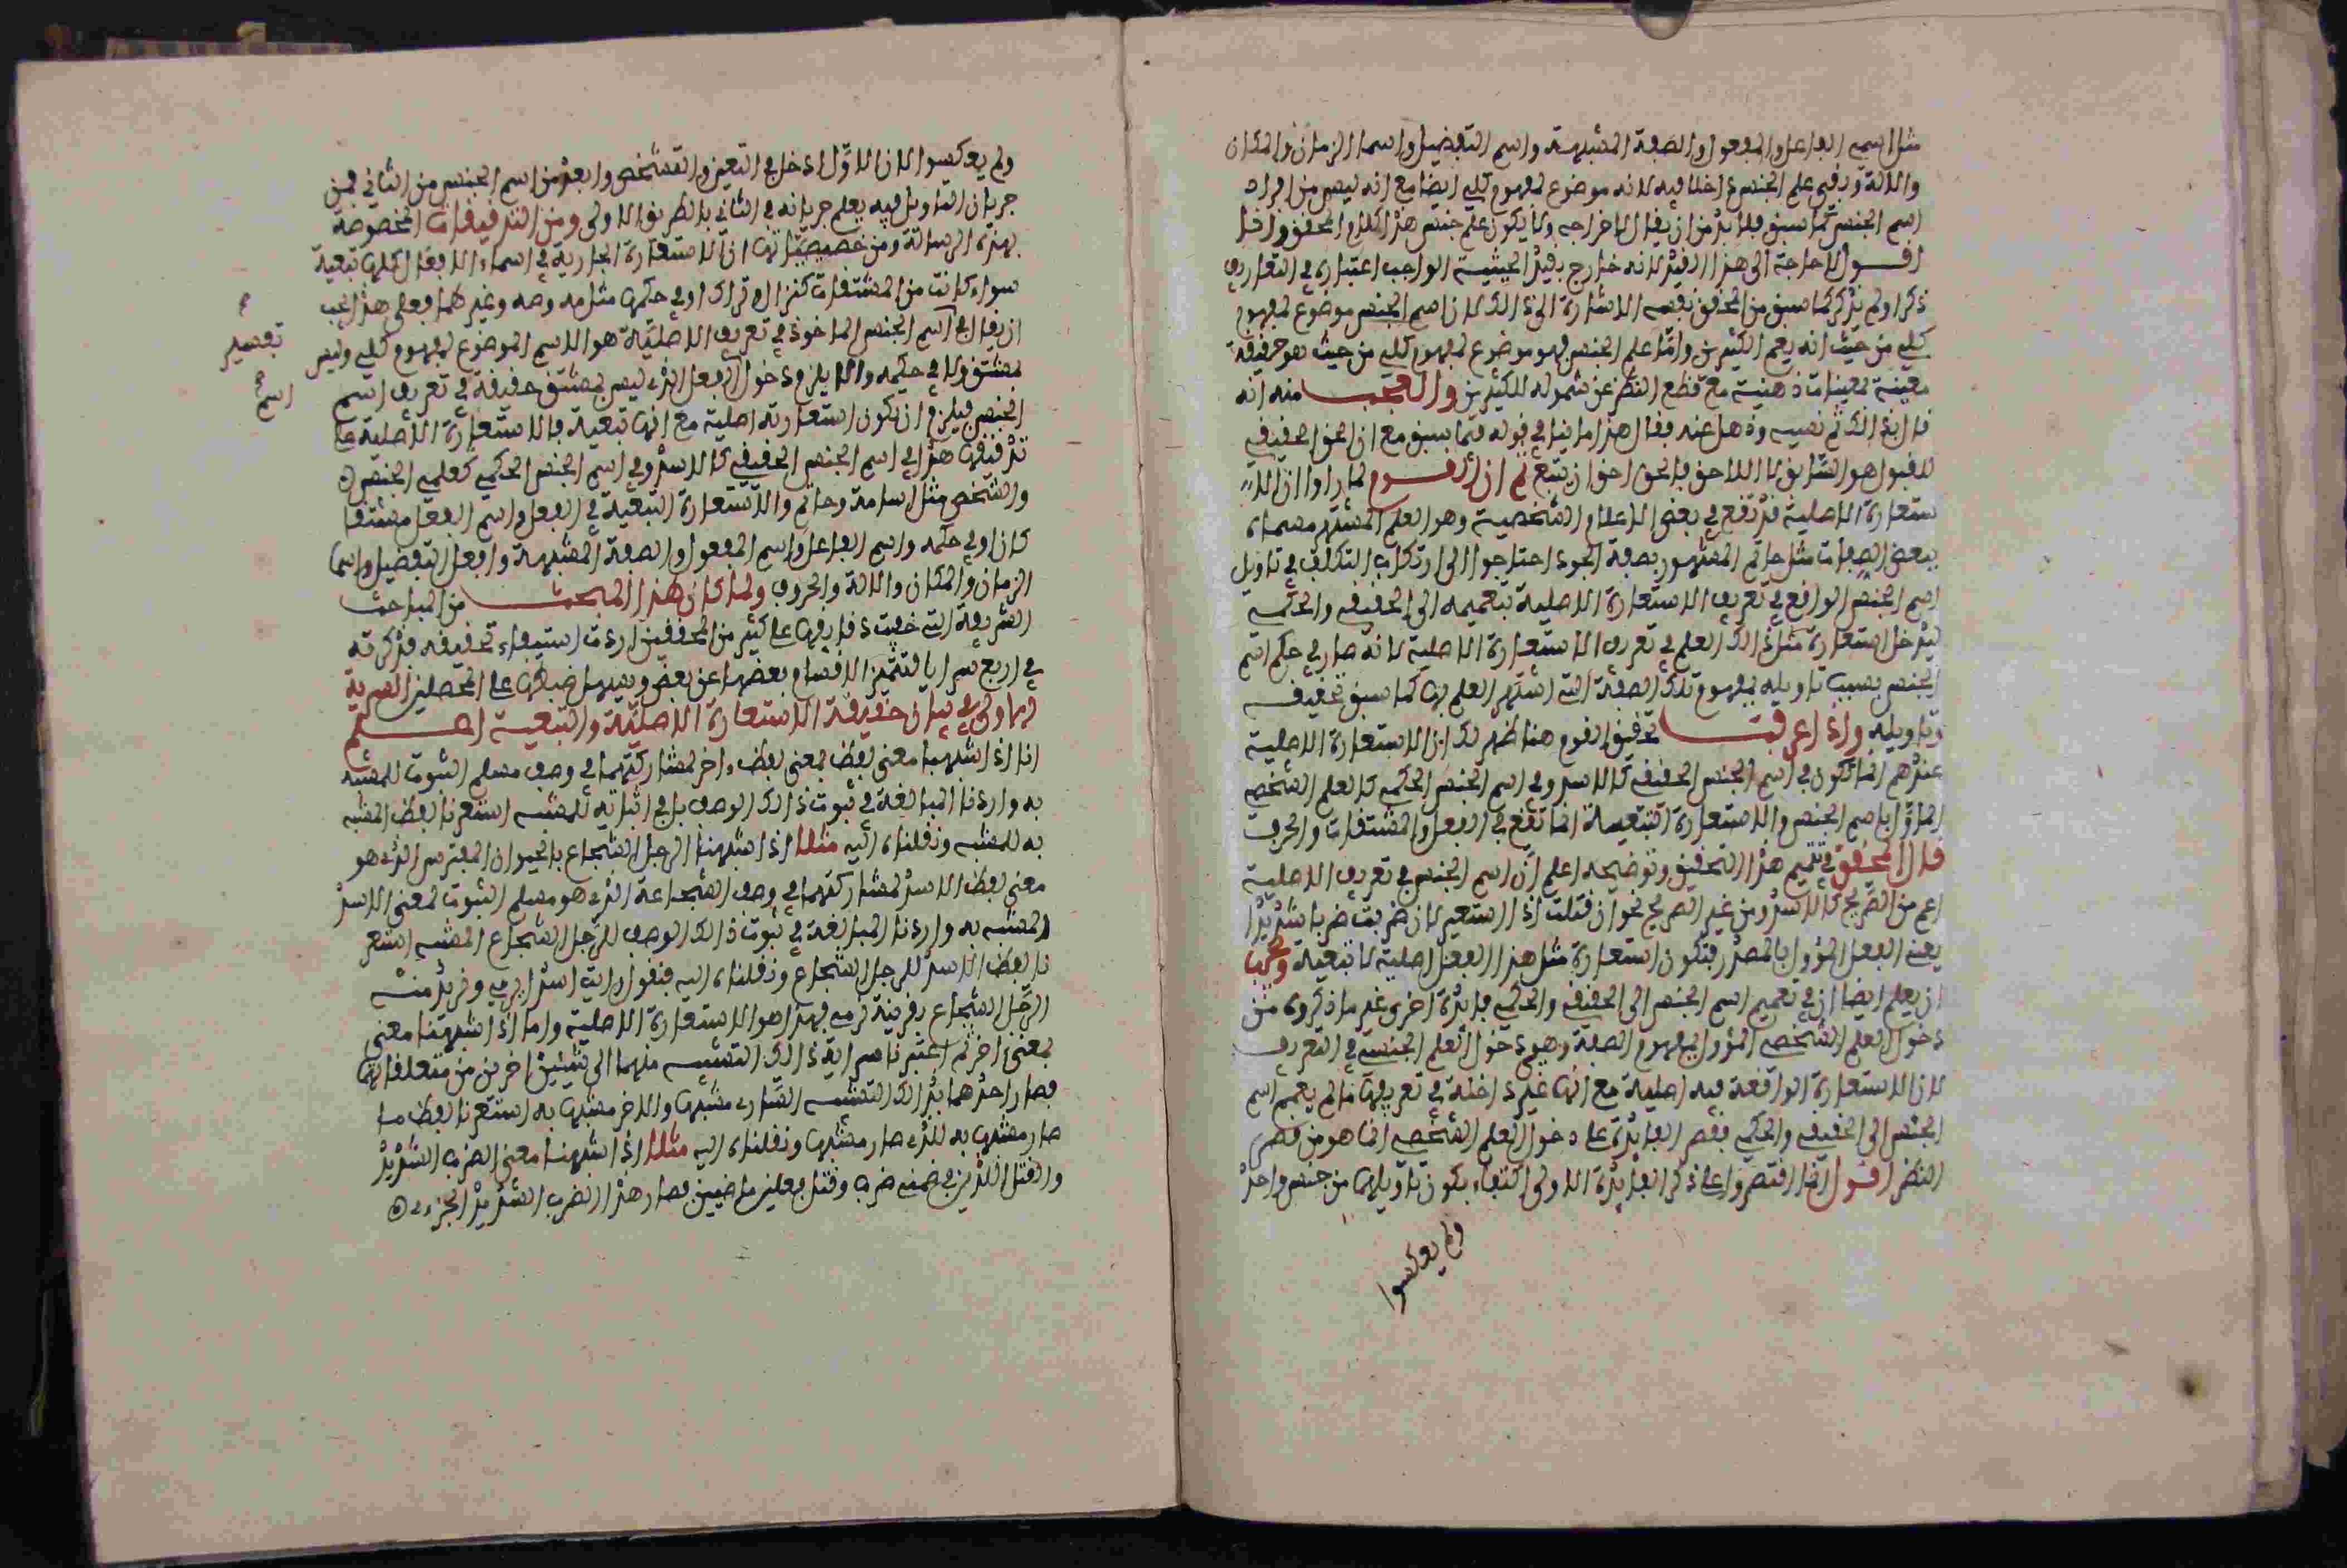 مثل اسم الفاعل والمفعول والصفة المشبهة واسم التفضيل واسما الزمان والمكان
والالة وبقي علم الجنس داخلا فيه لانه موضوع لمفهوم كلي ايضا مع انه ليس من افراد
اسم الجنس كما سبق فلا بد من ان يقال لاخراجه ولا يكون علم جنس هذا كلام المحقق واخذا
اقول لا حاجة الى هذا القيد لانه خارج بقيد الحيثية الواجب اعتباره في التعاريف
ذكر اولم يذكر كما سبق من المحقق نفسه الاشارة الى ذالك لان اسم الجنس موضوع لمفهوم
كلي من حيث انه يعم الكثيرين واما علم الجنس فهو موضوع لمفهوم كلي من حيث هو حقيقة
معينة لمعينات ذهنية مع قطع النظر عن شموله للكثيرين والعجب منه انه
قال بذالك ثم نفسه وذهل عنه فقال هذا ما نيا في قوله فيما سبق مع ان الحق الحقيقي
للقبول هو السابق لا اللاحق فالحق احق ان يتبع ثم ان القوم لما راوا ان الا
ستعارة الاصلية قد تقع في بعض الاعلام الشخصية وهو العلم المشتهر مسماه
ببعض الصفات مثل حاتم المشهور بصفة الجود احتاجوا الى ارتكاب التكلف في تاويل
اسم الجنس الواقع في تعريف الاستعارة الاصلية بتعميمه الى الحقيقي والحكمي
ليدخل استعارة مثل ذالك العلم في تعريف الاستعارة الاصلية لانه صار في حكم اسم
الجنس بسبب تاويله بمفهوم تلك الصفة التي اشتهر العلم بها كما سبق تحقيقه
وتاويله واذا عرفت تحقيق القوم هنا ظهر لك ان الاستعارة الاصلية
عندهم انما تكون في اسم الجنس الحقيقي كالاسد وفي اسم الجنس الحكمي كالعلم الشخصي
الماول باسم الجنس والاستعارة التبعية انما تقع في الفعل والمشتقات والحرف
قال المحقق في تتميم هذا التحقيق وتوضيحه اعلم ان اسم الجنس في تعريف الاصلية
اعم من الصريح كالاسد ومن غير الصريح نحو ان قتلت اذا استعير لان ضربت ضربا شديدا
يعني الفعل المؤول بالمصدر فتكون استعارة مثل هذا الفعل اصلية لا تبعية ويجب
ان يعلم ايضا ان في تعميم اسم الجنس الى الحقيقي والحكمي فائدة اخرى غير ما ذكروه من
دخول العلم الشخصي المؤول بمفهوم الصفة وهي دخول العلم الجنسي في التعريف
لان الاستعارة الواقعة فيه اصلية مع انها غير داخلة في تعريفها ما لم يعمم اسم
الجنس الى الحقيقي والحكمي فقصر الفائدة على دخول العلم الشخصي انما هو من قصر
النظر اقول انما اقتصروا على ذكر الفائدة الاولى اكتفاء بكون تاويلها من جنس واحد
ولم يعكسوا
ولم يعكسوا لان الاول ادخل في التعين والتشخص وابعد من اسم الجنس من الثاني فمن
جريان التاويل فيه يعلم جريانه في الثاني بالطريق الاولى ومن التدقيقات المخصوصة
بهذه الرسالة ومن خصيصياتها ان الاستعارة الجارية في اسماء الافعال كلها تبعية
سواء كانت من المشتقات كنزال وتراك او في حكمها مثل مه وصه وغيرهما فعلى هذا يجب
ان يقال في اسم الجنس الماخوذ في تعريف الاصلية هو الاسم الموضوع لمفهوم كلي وليس
بمشتق ولا في حكمه والا يلزم دخول الفعل الذي ليس بمشتق حقيقة في تعريف اسم
تفسير
اسم
الجنس فيلزم ان يكون استعارته اصلية مع انها تبعية فالاستعارة الاصلية على
تدقيقها هذا في اسم الجنس الحقيقي كالاسد وفي اسم الجنس الحكمي كعلمي الجنس
والشخص مثل اسامة وحاتم والاستعارة التبعية في الفعل واسم الفعل مشتقا
كان او في حكمه واسم الفاعل واسم المفعول والصفة المشبهة وافعل التفضيل واسما
الزمان والمكان والالة والحروف ولما كان هذا المبحث من المباحث
الشريفة التي خفيت دقايقها على كثير من المحققين اردت استيفاء تحقيقه فذكرته
في اربع سرايا لتتميز الاقسام بعضها عن بعض ويسهل ضبطها على المحصلين السرية
الاولى في بيان حقيقة الاستعارة الاصلية والتبعية اعلم
انا اذا شبهنا معنى لفظ بمعنى لفظ ءاخر لمشاركتهما في وصف مسلم الثبوت للمشبه
به واردنا المبالغة في ثبوت ذالك الوصف بل في اثباته للمشبه استعرنا لفظ المشبه
به للمشبه ونقلناه اليه مثلا اذا شبهنا الرجل الشجاع بالحيوان المفترس الذي هو
معنى لفظ الاسد لمشاركتهما في وصف الشجاعة الذي هو مسلم الثبوت لمعنى الاسد
المشبه به واردنا المبالغة في ثبوت ذالك الوصف للرجل الشجاع المشبه استعر
نا لفظ الاسد للرجل الشجاع ونقلناه اليه فنقول رايت اسدا يرمي ونريد منه
الرجل الشجاع بقرينة يرمي فهذا هو الاستعارة الاصلية واما اذا شبهنا معنى
بمعنى اخر ثم اعتبرنا سراية ذالك التشبيه منهما الى شيئين اخرين من متعلقاتهما
فصار احدهما بذالك التشبيه الساري مشبها والاخر مشبها به استعرنا لفظ ما
صار مشبها به للذي صار مشبها ونقلناه اليه مثلا اذا شبهنا معنى الضرب الشديد
والقتل اللذين في ضمن ضرب وقتل فعلين ماضيين فصار هذا الضرب الشديد الجزءي